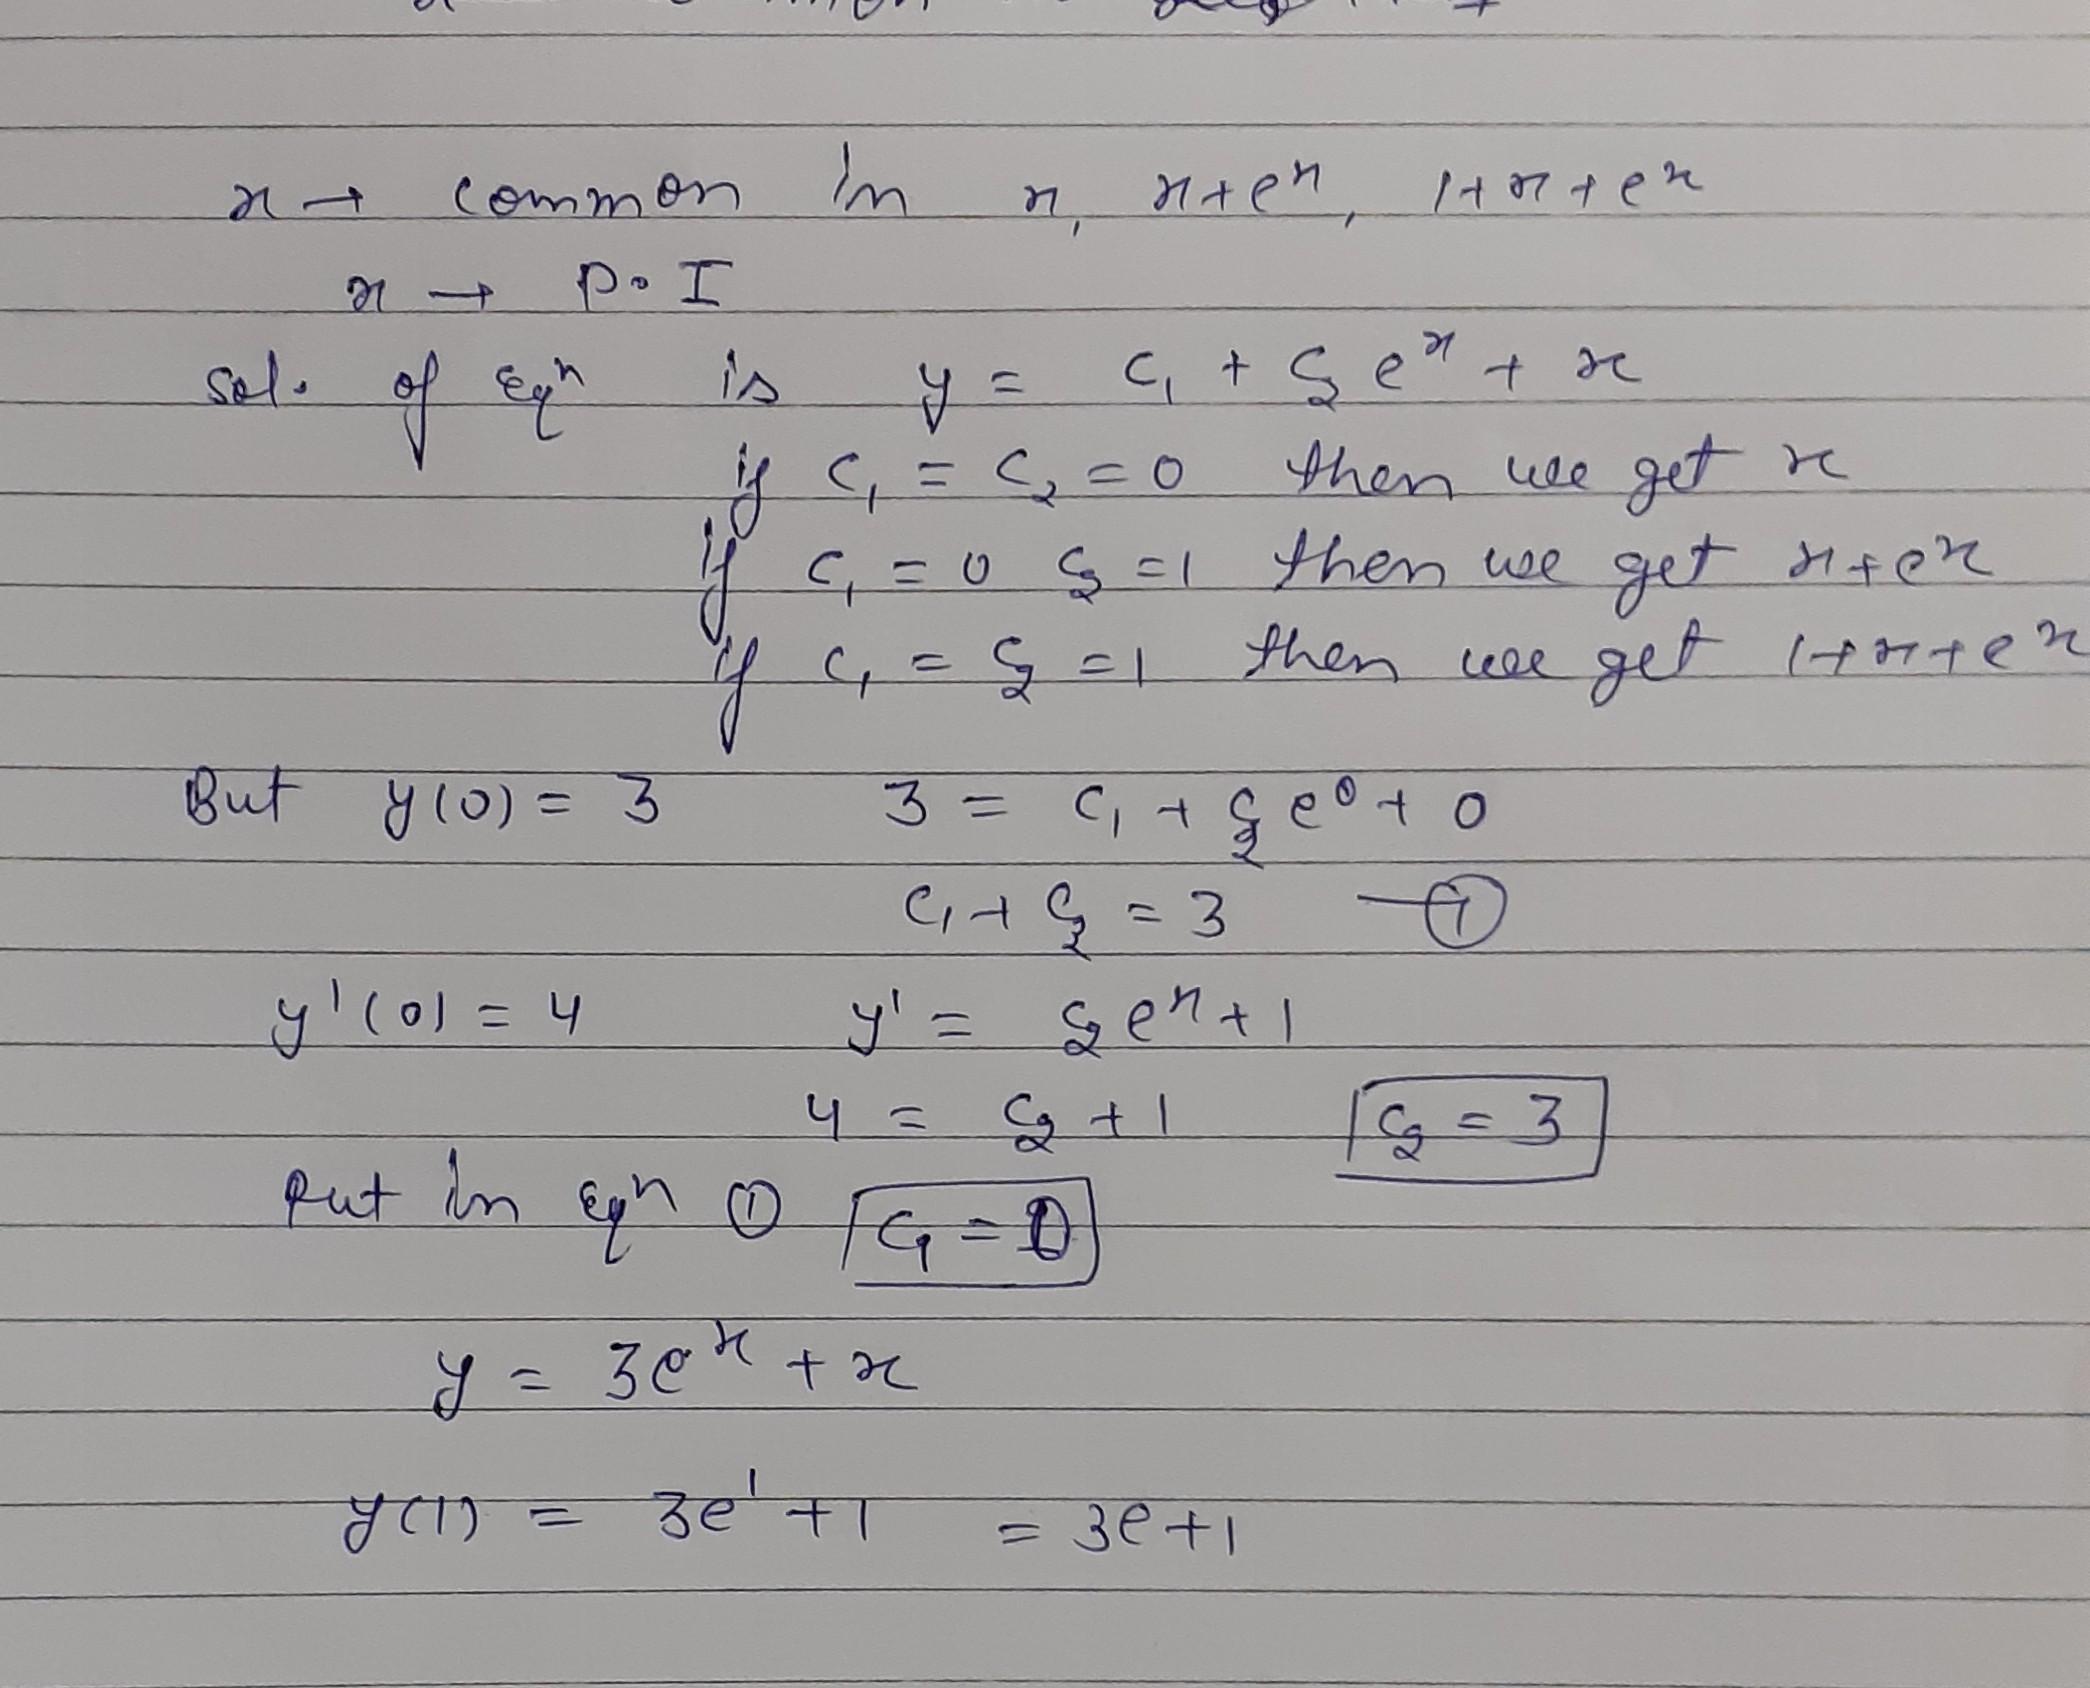 x → common in x, x+eˣ, 1+x+eˣ
x → P.I
Sol. of Eqⁿ is y = c₁ + c₂ eˣ + x
if c₁ = c₂ = 0 then we get x
if c₁ = 0 c₂ = 1 then we get x+eˣ
if c₁ = c₂ = 1 then we get 1+x+eˣ
But y(0) = 3 3 = c₁ + c₂ e⁰ + 0
c₁ + c₂ = 3 — ①
y'(0) = 4 y' = c₂ eˣ + 1
4 = c₂ + 1 c₂ = 3
Put in Eqⁿ ① c₁ = 0
y = 3eˣ + x
y(1) = 3e¹ + 1 = 3e+1